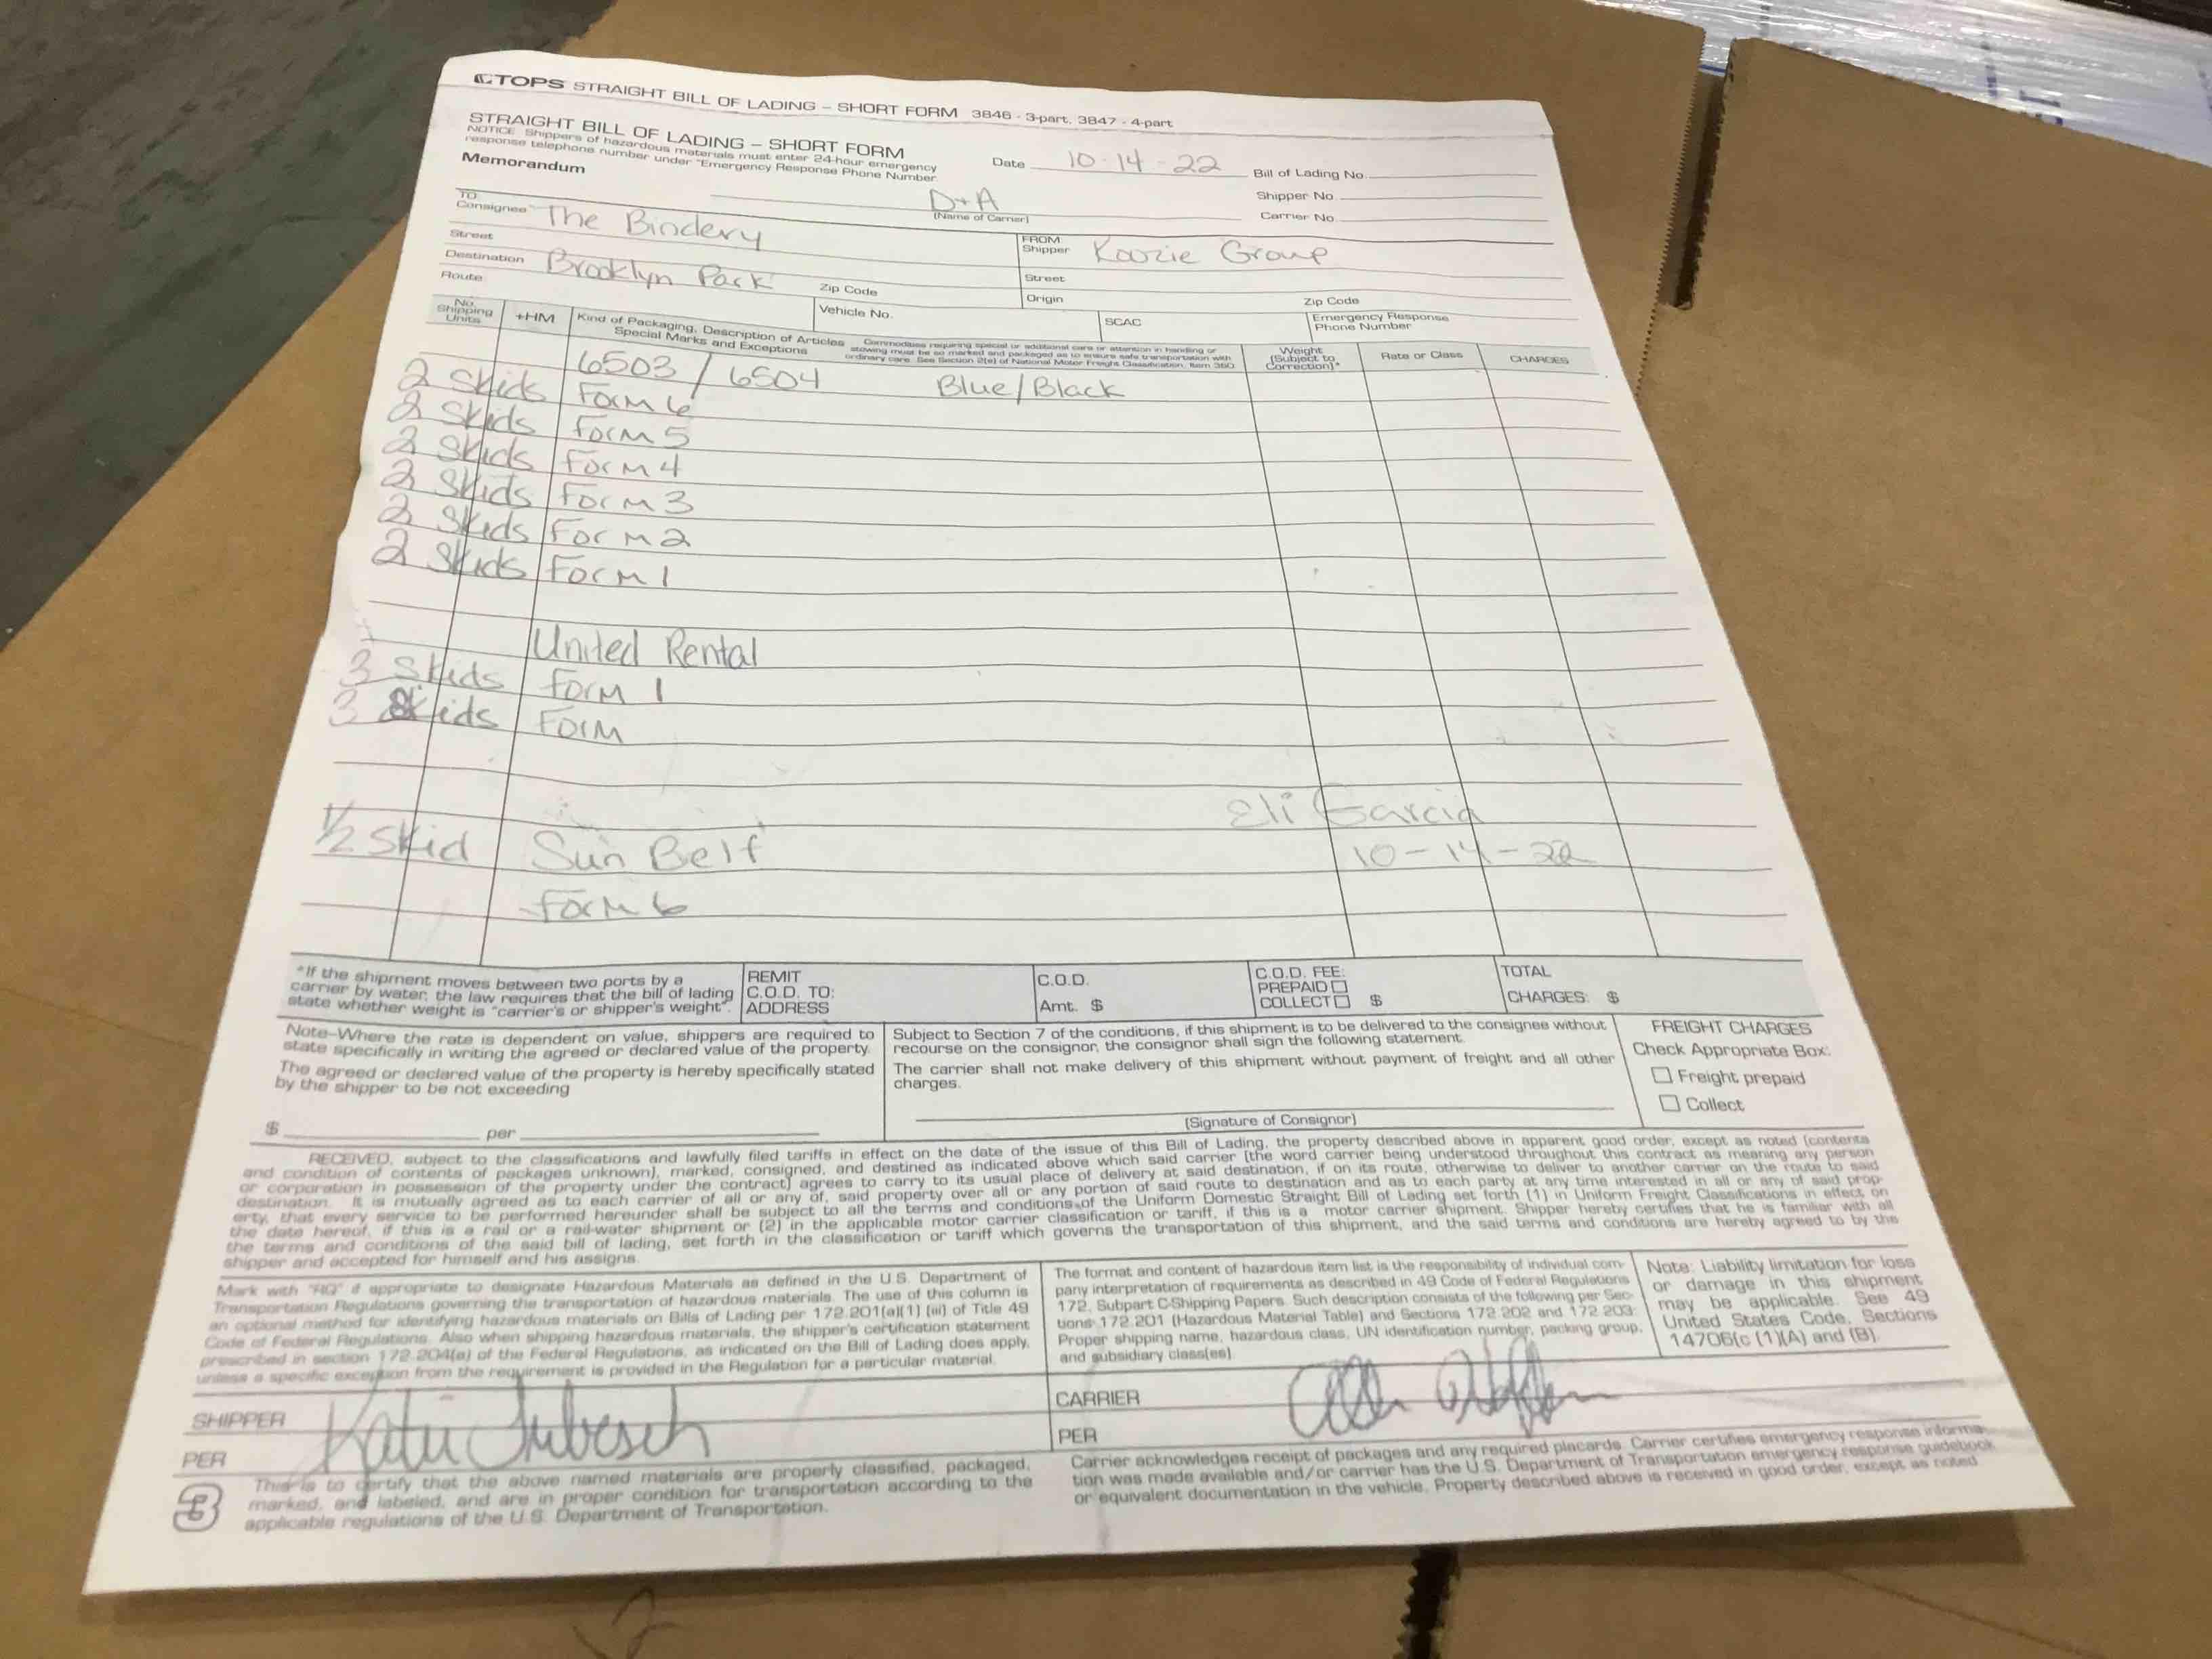 TOPS STRAIGHT BILL OF LADING – SHORT FORM 3846 - 3-part, 3847 - 4-part
STRAIGHT BILL OF LADING – SHORT FORM
NOTICE: Shippers of hazardous materials must enter 24-hour emergency
response telephone number under "Emergency Response Phone Number.
Memorandum
Date 10-14-22
Bill of Lading No.
Shipper No.
Carrier No.
D+A
(Name of Carrier)
TO:
Consignee The Bindery
Street
Destination Brooklyn Park Zip Code
Route
FROM:
Shipper Koozie Group
Street
Origin Zip Code
Vehicle No. SCAC Emergency Response
Phone Number
No.
Shipping
Units
+HM
Kind of Packaging, Description of Articles
Special Marks and Exceptions
Commodities requiring special or additional care or attention in handling or
stowing must be so marked and packaged as to ensure safe transportation with
ordinary care. See Section 2(e) of National Motor Freight Classification, Item 360
Weight
(Subject to
Correction)*
Rate or Class
CHARGES
6503 / 6504 Blue/Black
2 Skids Form 6
2 Skids Form 5
2 Skids Form 4
2 Skids Form 3
2 Skids Form 2
2 Skids Form 1
United Rental
3 Skids Form 1
3 Skids Form
Eli Garcia
1/2 Skid Sun Belt
10-14-22
Form 6
*If the shipment moves between two ports by a
carrier by water, the law requires that the bill of lading
state whether weight is "carrier's or shipper's weight".
REMIT
C.O.D. TO:
ADDRESS
C.O.D.
Amt. $
C.O.D. FEE:
PREPAID
COLLECT $
TOTAL
CHARGES: $
Note–Where the rate is dependent on value, shippers are required to
state specifically in writing the agreed or declared value of the property.
The agreed or declared value of the property is hereby specifically stated
by the shipper to be not exceeding
$ per
Subject to Section 7 of the conditions, if this shipment is to be delivered to the consignee without
recourse on the consignor, the consignor shall sign the following statement.
The carrier shall not make delivery of this shipment without payment of freight and all other
charges.
(Signature of Consignor)
FREIGHT CHARGES
Check Appropriate Box:
Freight prepaid
Collect
RECEIVED, subject to the classifications and lawfully filed tariffs in effect on the date of the issue of this Bill of Lading, the property described above in apparent good order, except as noted (contents
and condition of contents of packages unknown), marked, consigned, and destined as indicated above which said carrier (the word carrier being understood throughout this contract as meaning any person
or corporation in possession of the property under the contract) agrees to carry to its usual place of delivery at said destination, if on its route, otherwise to deliver to another carrier on the route to said
destination. It is mutually agreed as to each carrier of all or any of, said property over all or any portion of said route to destination and as to each party at any time interested in all or any of said prop-
erty, that every service to be performed hereunder shall be subject to all the terms and conditions of the Uniform Domestic Straight Bill of Lading set forth (1) in Uniform Freight Classifications in effect on
the date hereof, if this is a rail or a rail-water shipment or (2) in the applicable motor carrier classification or tariff, if this is a motor carrier shipment. Shipper hereby certifies that he is familiar with all
the terms and conditions of the said bill of lading, set forth in the classification or tariff which governs the transportation of this shipment, and the said terms and conditions are hereby agreed to by the
shipper and accepted for himself and his assigns.
Mark with "RQ" if appropriate to designate Hazardous Materials as defined in the U.S. Department of
Transportation Regulations governing the transportation of hazardous materials. The use of this column is
an optional method for identifying hazardous materials on Bills of Lading per 172.201(a)(1) (iii) of Title 49
Code of Federal Regulations. Also when shipping hazardous materials, the shipper's certification statement
prescribed in section 172.204(a) of the Federal Regulations, as indicated on the Bill of Lading does apply,
unless a specific exception from the requirement is provided in the Regulation for a particular material.
The format and content of hazardous item list is the responsibility of individual com-
pany interpretation of requirements as described in 49 Code of Federal Regulations
172, Subpart C-Shipping Papers. Such description consists of the following per Sec-
tions 172.201 (Hazardous Material Table) and Sections 172.202 and 172.203:
Proper shipping name, hazardous class, UN identification number, packing group,
and subsidiary class(es).
Note: Liability limitation for loss
or damage in this shipment
may be applicable. See 49
United States Code, Sections
14706(c (1)(A) and (B).
SHIPPER
PER Katie
CARRIER
PER
3
This is to certify that the above named materials are properly classified, packaged,
marked, and labeled, and are in proper condition for transportation according to the
applicable regulations of the U.S. Department of Transportation.
Carrier acknowledges receipt of packages and any required placards. Carrier certifies emergency response informa-
tion was made available and/or carrier has the U.S. Department of Transportation emergency response guidebook
or equivalent documentation in the vehicle. Property described above is received in good order, except as noted